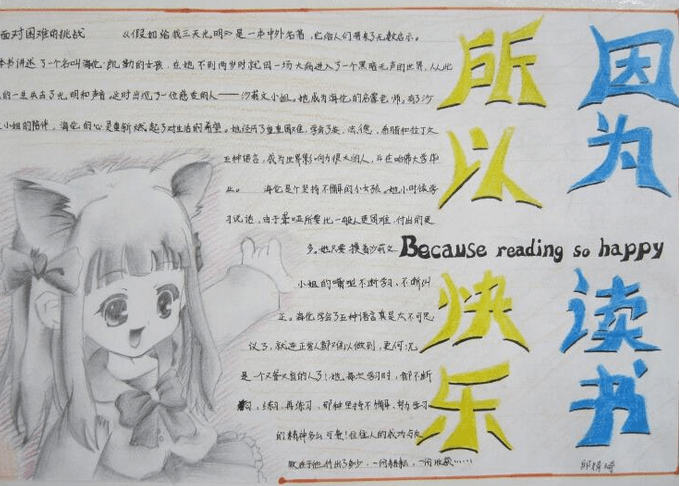 因为
读书
所以
快乐
Because reading so happy
面对困难的挑战 《假如给我三天光明》是一本中外名著,它给人们带来了无数启示。
本书讲述了一个名叫海伦·凯斯的女孩,在她不到两岁时就因一场大病进入了一个黑暗无声的世界,从此
的一生失去了光明和声音。这时出现了一位慈爱的人——沙莉文小姐。她成为海伦的启蒙老师。有了沙
小姐的陪伴,海伦的心是重新燃起了对生活的希望。她经历了重重困难,学会了英、法、德、希腊和拉丁文
五种语言,成为世界影响力很大的人,并在哈佛大学毕
业。 海伦是个坚持不懈的小女孩。她小时候学
习说话,由于聋哑所要比一般人更困难,付出的更
多。她只要摸着沙莉文
小姐的嘴型不断学习、不断纠
正。海伦学会了五种语言真是太不可思
议了,就连正常人都难以做到,更何况
是一个又聋又盲的人了!她每次学习时,都不断
练习,再练习,那种坚持不懈、努力学习
的精神多么可贵!往往人的成功与失
败在于他付出了多少,一份耕耘,一份收获……